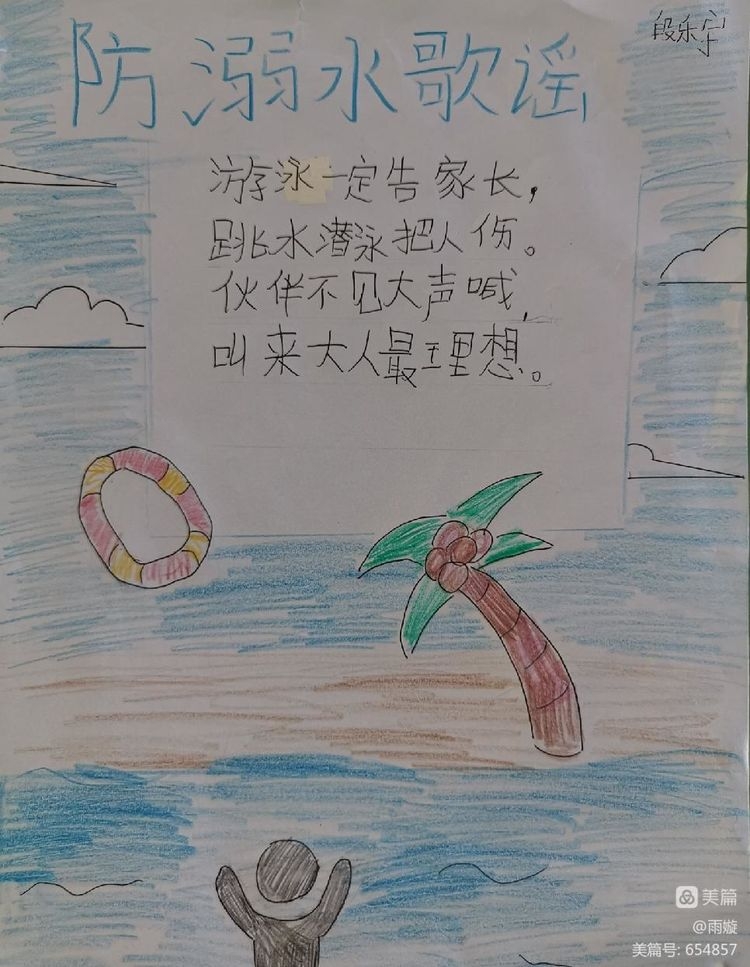 段乐宇
防溺水歌谣
游泳一定告家长，
跳水潜泳把人伤。
伙伴不见大声喊，
叫来大人最理想。
美篇
@雨璇
美篇号: 654857